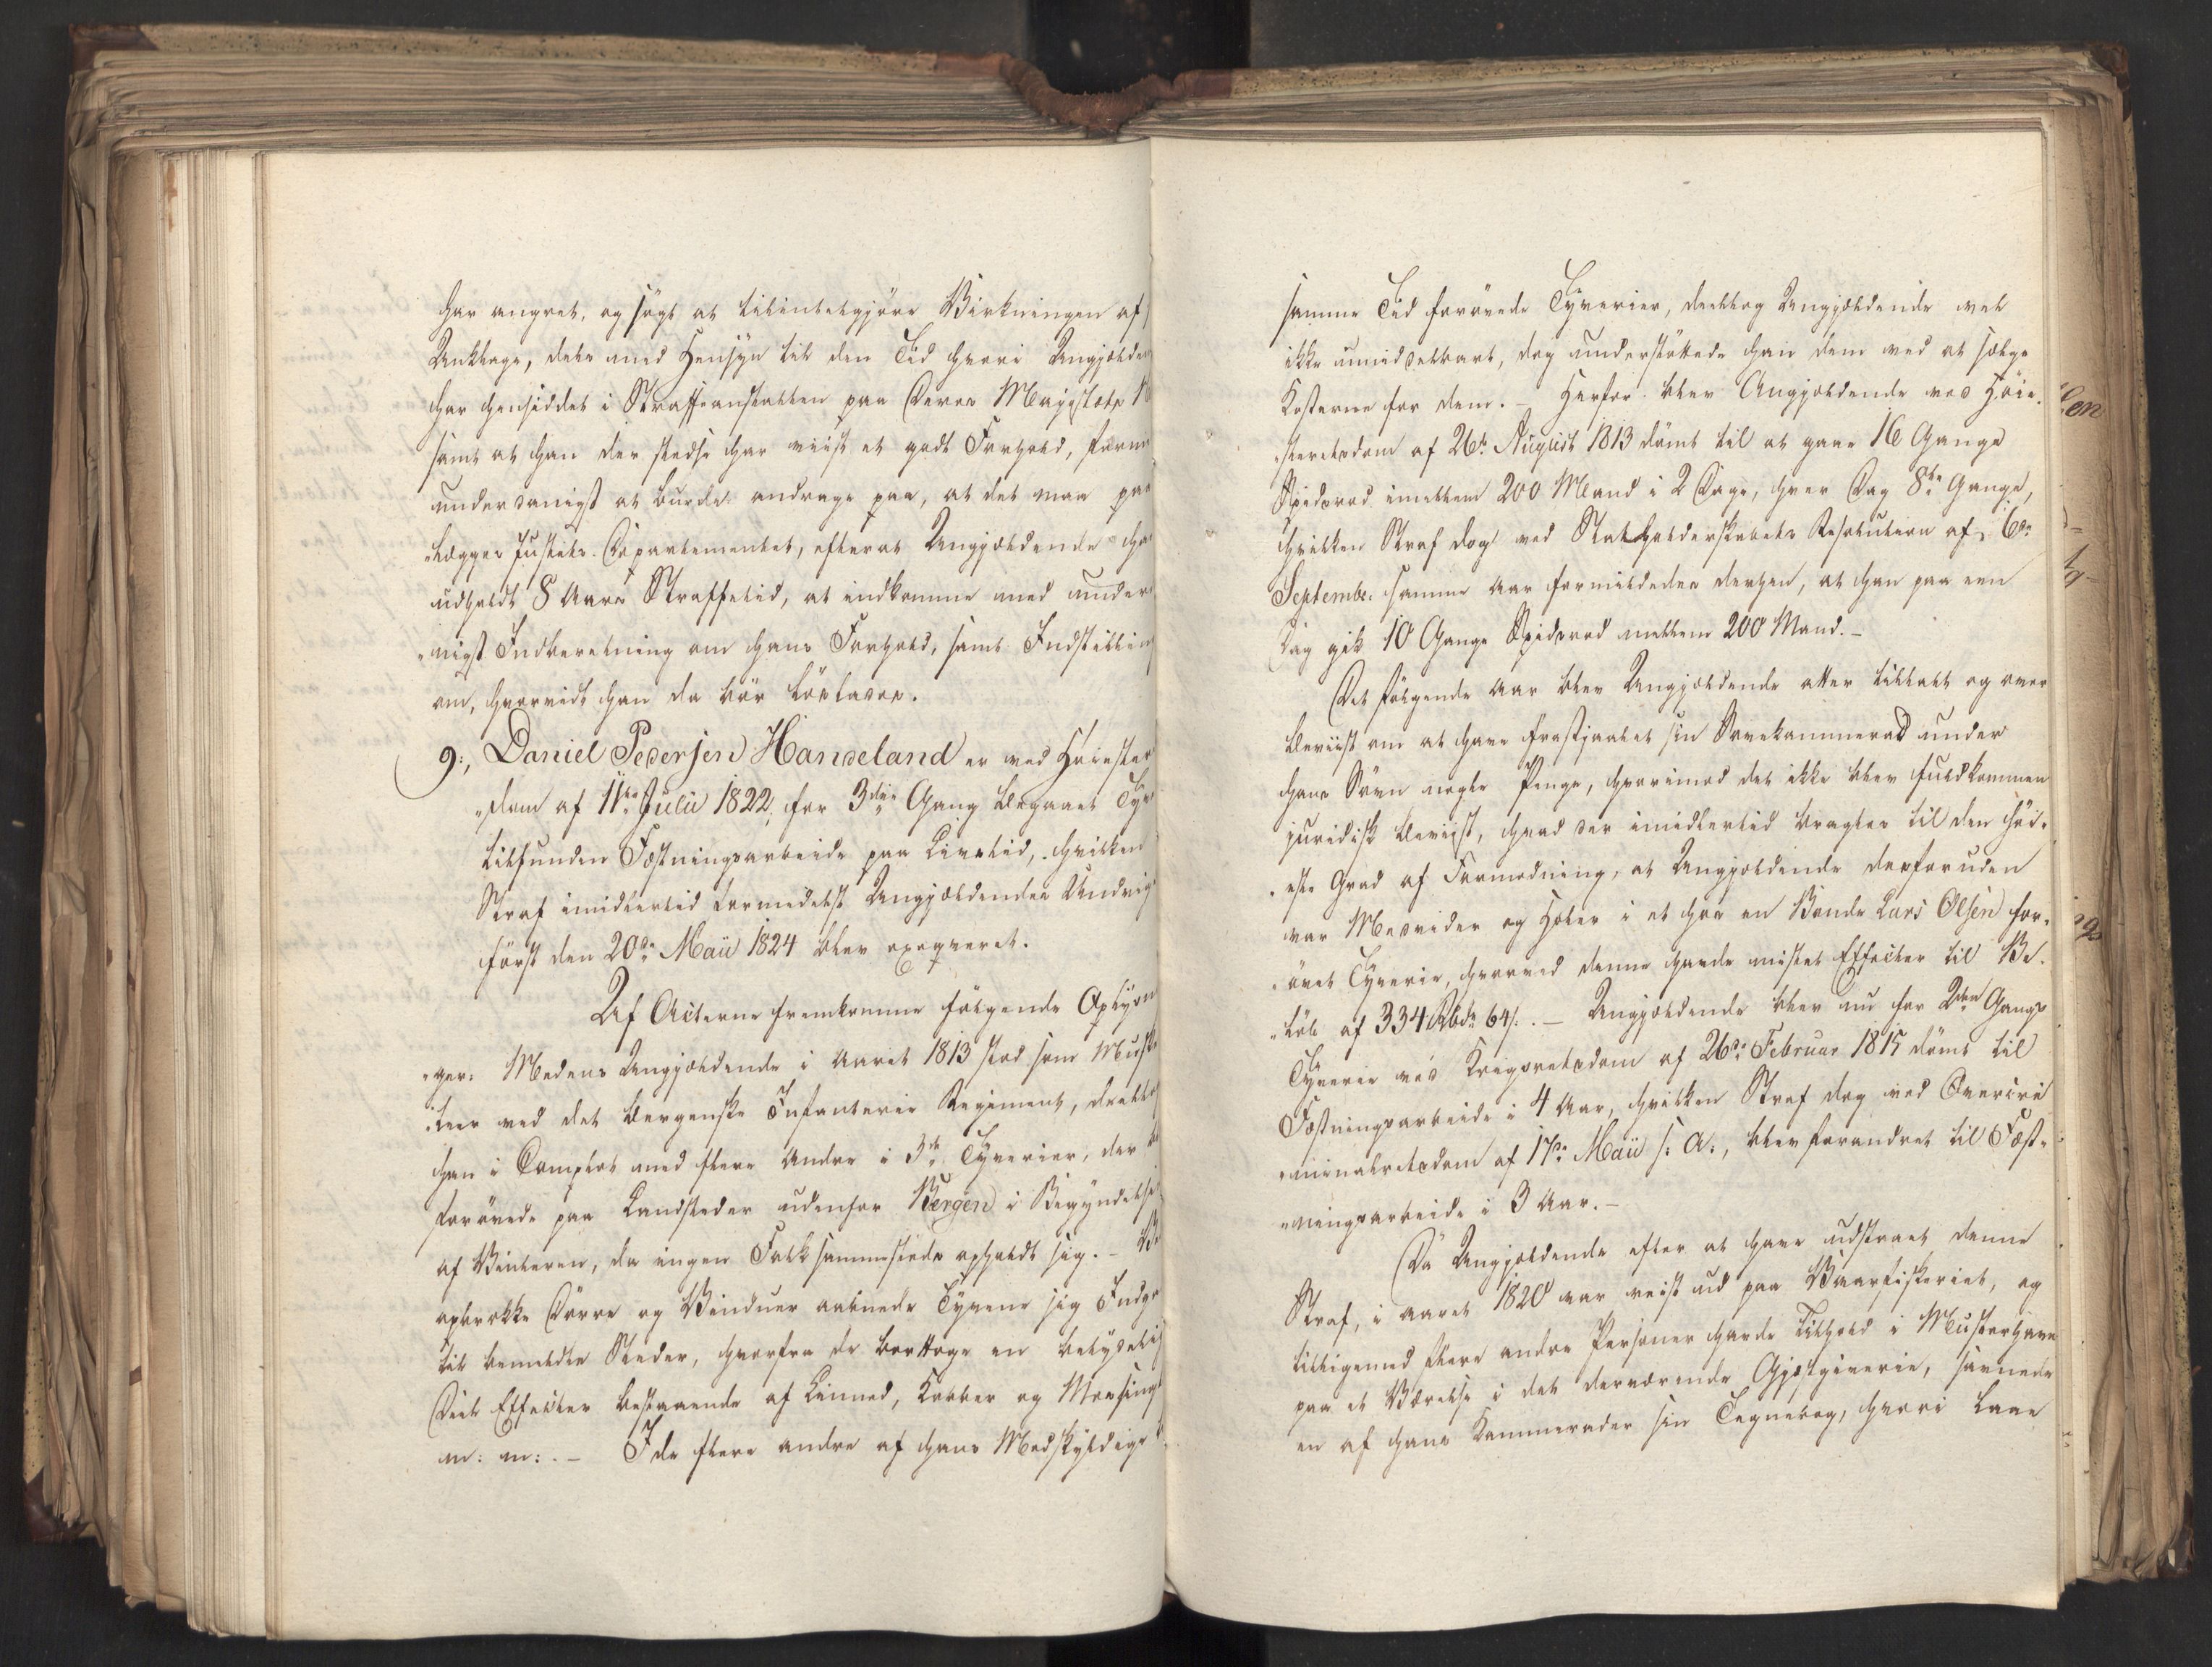 har angret, og søgt at tilintetgjøre Virkningen af
Anklage, dels med Hensyn til den Tid hvori Angjælden
har hensiddet i Straffeanstalten paa Deres Majestæts
samt at han der stedse har viist et godt Forhold,
underdanigst at burde andrage paa, at det maa paa
„lægges Justits-Departementet, efterat Angjældende ha
udholdt 8 Aars Straffetid, at indkomme med under
„nigst Indberetning om hans Forhold, samt Indstilling
om, hvorvidt han da bør løslades.
9:, Daniel Pedersen Handeland er ved Høiester
„dom af 11te Julii 1822, for 3die Gang begaaet Tyv
tilfunden Fæstningsarbeide paa Livstid, hvilken
Straf imidlertid formedelst Angjældendes Undvig
først den 20de Maii 1824 blev exeqveret.
Af Acterne fremkomme følgende Oplysn
„ger: Medens Angjældende i Aaret 1813 stod som Musk
„teer ved det bergenske Infanterie Regiment, deeltog
han i Complot med flere Andre i 3de Tyverier, der
forøvede paa Landsteder udenfor Bergen i Begyndelse
af Vinteren, da ingen Folk sammesteds opholdt sig. –
opbrække Dørre og Vinduer aabnede Tyvene sig Indg
til bemeldte Steder, hvorfra de borttoge en betydelig
Deel Effecter bestaaende af Linned, Kobber og Messing
m: m: . – I de flere andre af hans Medskyldige
samme Tid forøvede Tyverier, deeltog Angjældende vel
ikke umiddelbart, dog understøttede han dem ved at sælge
Kosterne for dem. – Herfor blev Angjældende ved Høie-
„steretsdom af 26de August 1813 dømt til at gaae 16 Gange
Spidsrod imellem 200 Mand i 2 Dage, hver Dag 8te Gange,
hvilken Straf dog ved Statholderskabets Resolution af 6te
September samme Aar formildedes derhen, at han paa een
Dag gik 10 Gange Spidsrod mellem 200 Mand. –
Det følgende Aar blev Angjældende atter tiltalt og over
beviist om at have frastjaalet sin Sovekammerad under
hans Søvn nogle Penge, hvorimod det ikke blev fuldkommen
juridisk beviist, hvad der imidlertid bragtes til den høi-
„este Grad af Formodning, at Angjældende desforuden
var Medvider og Hæler i et hos en Bonde Lars Olsen for-
„øvet Tyverie, hvorved denne havde mistet Effecter til Be-
„løb af 334 Rbd 64 s. – Angjældende blev nu for 2den Gangs
Tyverie ved Krigsretsdom af 26de Februar 1815 dømt til
Fæstningsarbeide i 4 Aar, hvilken Straf dog ved Overcri
„minalretsdom af 17de Maii s: A:, blev forandret til Fæst-
„ningsarbeide i 3 Aar. –
Da Angjældende efter at have udstaaet denne
Straf, i Aaret 1820 var reist ud paa Vaarfiskeriet, og
tilligemed flere andre Personer havde Tilhold i Musterhavn
paa et Værelse i det derværende Gjæstgiverie, savnede
en af hans Kammerader sin Tegnebog, hvori laae